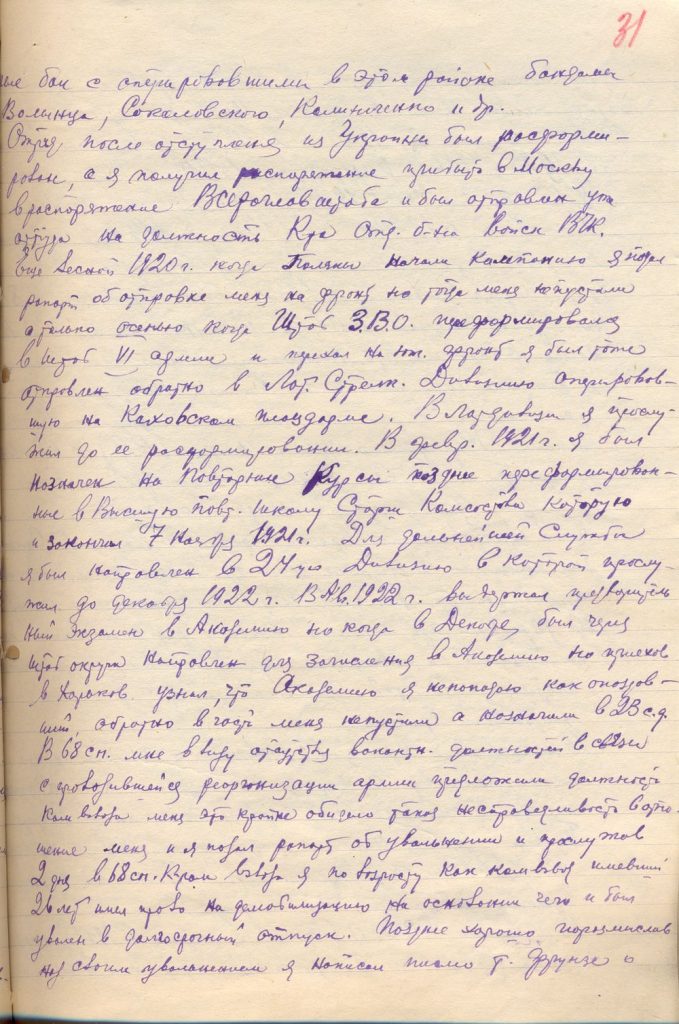 31
бои с оперировавшими в этом районе бандами
Волынца, Соколовского, Калиниченко и др.
Отряд после отступления из Украины был расформи-
рован, а я получил распоряжение прибыть в Москву
в распоряжение Всероглавштаба и был отправлен
оттуда на должность К-ра Отд. б-на Войск ВЧК.
Еще весной 1920 г. когда Поляки начали кампанию я подал
рапорт об отправке меня на фронт но тогда меня непустили
а только осенью когда Штаб З.В.О. переформировался
в штаб VI армии и переехал на юж. фронт я был тоже
отправлен обратно в Лат. Стрелк. Дивизию оперировав-
шую на Каховском плацдарме. В Латдивизии я прослу-
жил до ее расформирования. В февр. 1921 г. я был
назначен на Повторные Курсы позднее переформирован-
ные в Высшую Повт. школу Старш Комсостава которую
и закончил 7 Ноября 1921 г. Для дальнейшей Службы
я был направлен в 24ую Дивизию в которой прослу-
жил до декабря 1922 г. В Ав. 1922 г. выдержал предваритель
ный экзамен в Академию но когда в Декабре был через
штаб округа направлен для зачисления в Академию но приехав
в Харьков узнал, что Академию я непопадаю как опоздав-
ший, обратно в часть меня непустили а назначили в 23 с.д.
В 68 сп. мне в виду отсутствия вакантн. должностей в связи
с проводившейся реорганизации армии предложили должность
Ком взвода меня это крайне обидело такая несправедливость в отно-
шение меня и я подал рапорт об увольнении и прослужив
2 дня в 68 сп. К-ром взвода я по возрасту как комвзвод имевший
26 лет имел право на демобилизацию на основании чего и был
уволен в долгосрочный отпуск. Позднее хорошо поразмыслив
над своим увольнением я написал письмо т. Фрунзе о